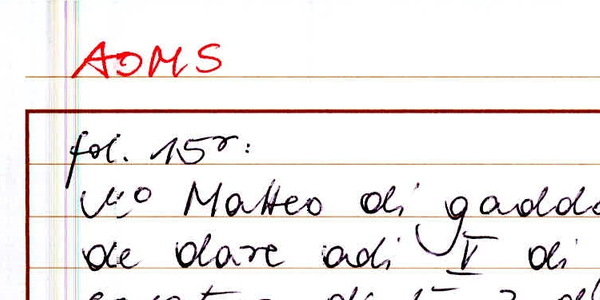 AOMS
fol. 15r:
Matteo di gadd
de dare adi V di